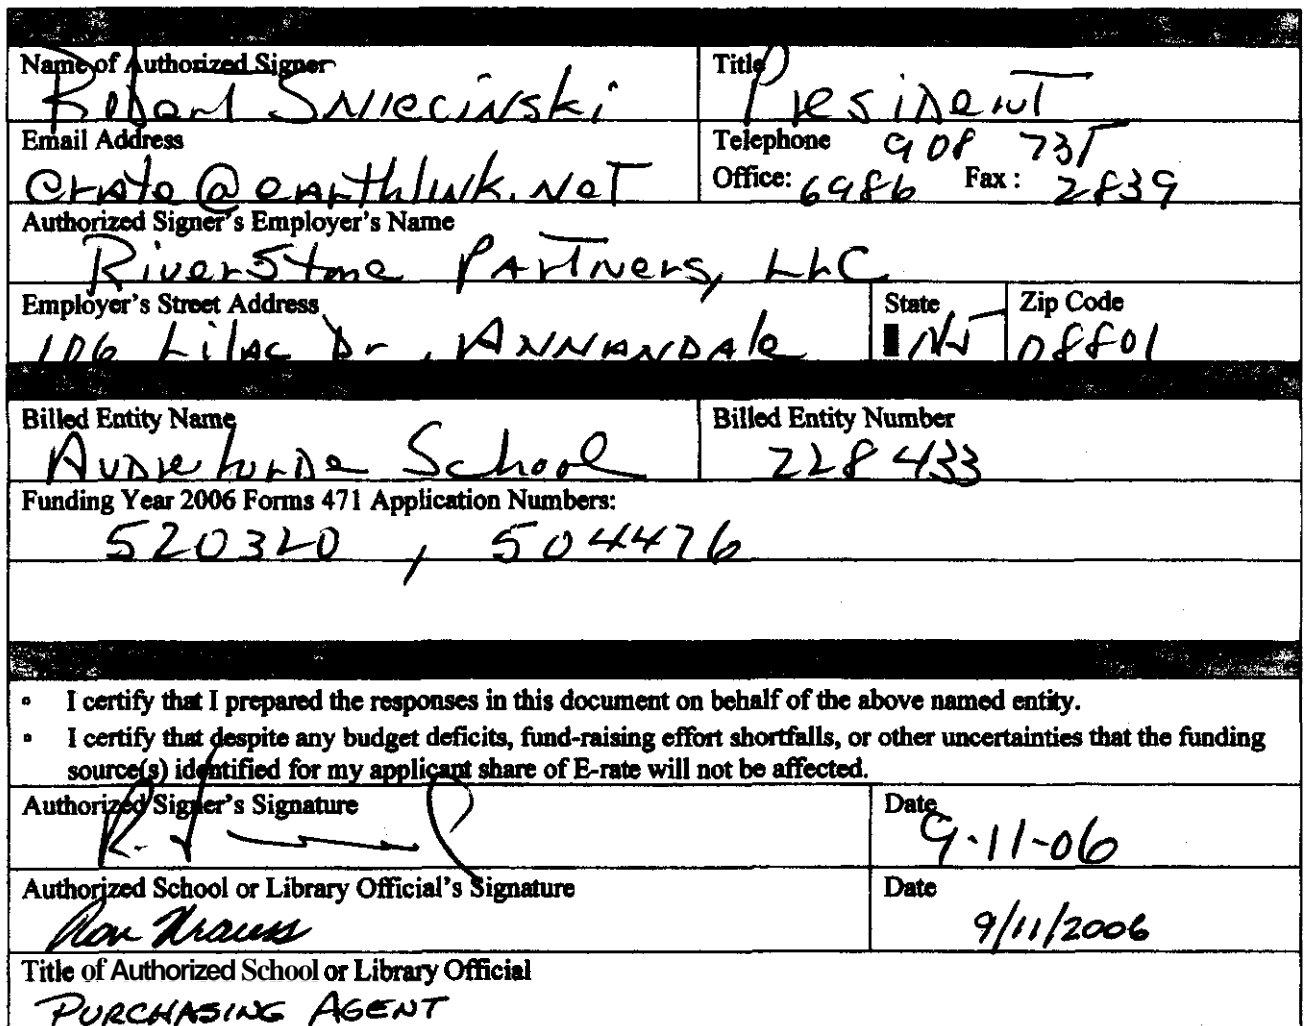 Name of Authorized Signer Title
Robert Sniecinski President
Email Address Telephone 908 735
erate@earthlink.net Office: 6986 Fax: 2839
Authorized Signer's Employer's Name
RiverStone Partners, LLC
Employer's Street Address State Zip Code
106 Lilac Dr, Annandale NJ 08801
Billed Entity Name Billed Entity Number
School 228433
Funding Year 2006 Forms 471 Application Numbers:
520320, 504476
▫ I certify that I prepared the responses in this document on behalf of the above named entity.
▫ I certify that despite any budget deficits, fund-raising effort shortfalls, or other uncertainties that the funding
source(s) identified for my applicant share of E-rate will not be affected.
Authorized Signer's Signature Date
9-11-06
Authorized School or Library Official's Signature Date
Ron Krauss 9/11/2006
Title of Authorized School or Library Official
PURCHASING AGENT